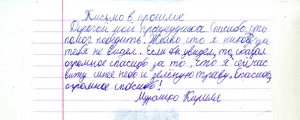 Письмо в прошлое
Дорогой мой прадедушка! Спасибо, что
помог победить. Жалко, что я никогда
тебя не видел. Если бы увидел, то сказал
огромное спасибо за то, что я сейчас
вижу синее небо и зелёную траву. Спасибо,
огромное спасибо!
Кирилл